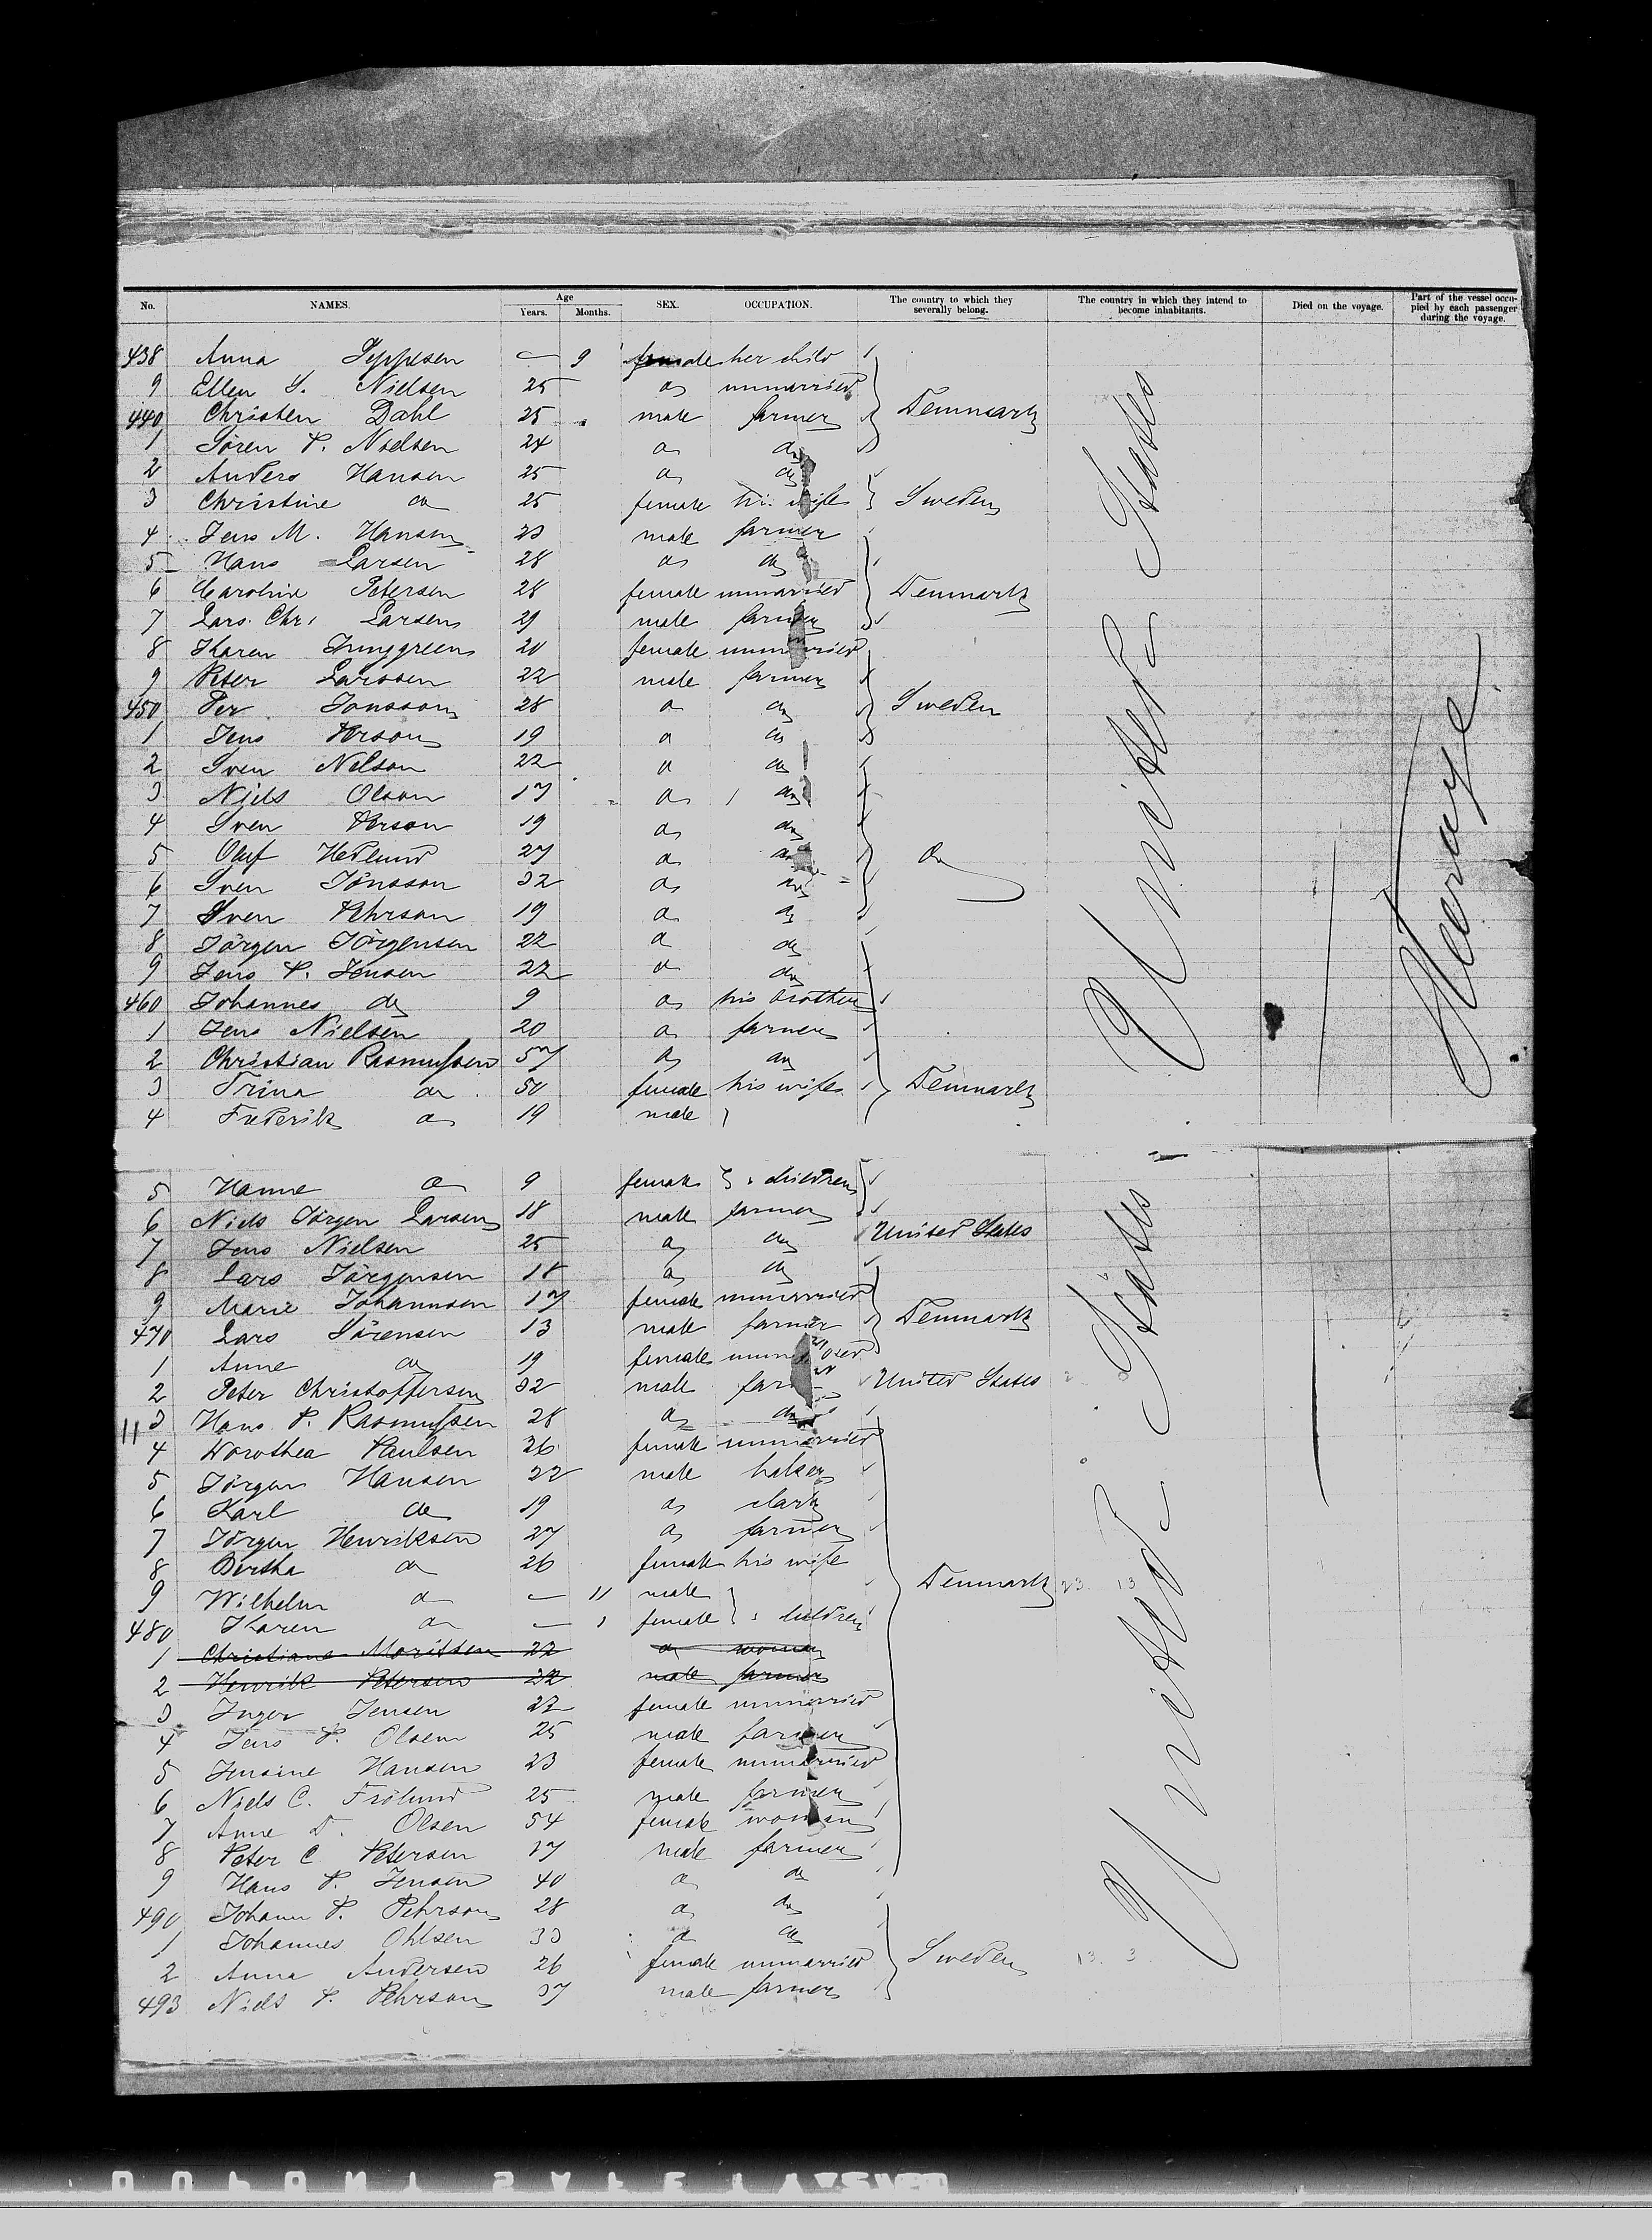 No. NAMES. Age Years. Months. SEX. OCCUPATION. The country to which they severally belong. The country in which they intend to become inhabitants. Died on the voyage. Part of the vessel occupied by each passenger during the voyage.
438 Anna Jeppesen — 9 female her child
9 Ellen S. Nielsen 25 do unmarried
440 Christen Dahl 25 male farmer Denmark
1 Sören P. Nielsen 24 do do
2 Anders Hansen 25 do do
3 Christine do 25 female his wife Sweden
4 Jens M. Hansen 23 male farmer
5 Hans Larsen 28 do do
6 Caroline Petersen 28 female unmarried Denmark
7 Lars Chr. Larsen 29 male farmer
8 Karen Junggreen 20 female unmarried
9 Peter Larsson 22 male farmer
450 Per Jonsson 28 do do Sweden
1 Jens Person 19 do do
2 Sven Nelson 22 do do
3 Niels Olson 17 do do
4 Sven Person 19 do do
5 Oluf Hedlund 27 do do do
6 Sven Jönsson 32 do do
7 Sven Pehrson 19 do do
8 Jörgen Jörgensen 22 do do
9 Jens P. Jensen 22 do do
460 Johannes do 9 do his brother
1 Jens Nielsen 20 do farmer
2 Christian Rasmussen 57 do do
3 Trina do 50 female his wife Denmark
4 Frederik do 19 male
5 Hanne do 9 female children
6 Niels Jörgen Larsen 18 male farmer
7 Jens Nielsen 25 do do United States
8 Lars Jörgensen 18 do do
9 Marie Johannsen 17 female unmarried
470 Lars Sörensen 13 male farmer Denmark
1 Anne do 19 female unmarried
2 Peter Christoffersen 32 male farmer United States
3 Hans P. Rasmussen 28 do do
4 Dorothea Paulsen 26 female unmarried
5 Jörgen Hansen 22 male baker
6 Karl do 19 do clark
7 Jörgen Henriksen 27 do farmer
8 Bertha do 26 female his wife
9 Wilhelm do — 11 male Denmark
480 Karen do — 1 female children
1 Christiane Moritsen 22 do woman
2 Henrik Petersen 22 male farmer
3 Inger Jensen 22 female unmarried
4 Jens P. Olsen 25 male farmer
5 Jensine Hansen 23 female unmarried
6 Niels C. Frölund 25 male farmer
7 Anne D. Olsen 54 female woman
8 Peter C Petersen 17 male farmer
9 Hans P. Jensen 40 do do
490 Johann P. Pehrson 28 do do
1 Johannes Ohlsen 33 do do
2 Anna Andersen 26 female unmarried Sweden
493 Niels P. Pehrson 37 male farmer
United States
Steerage
United States